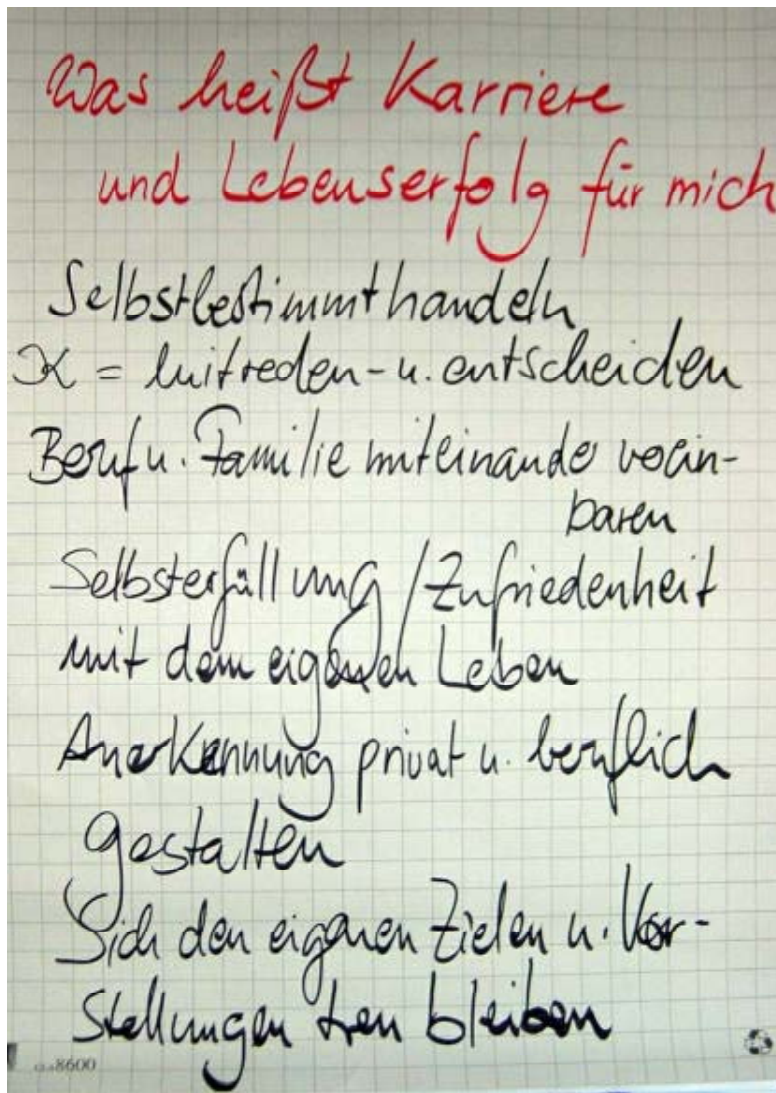 Was heißt Karriere
und Lebenserfolg für mich
Selbstbestimmt handeln
K = mitreden- u. entscheiden
Beruf u. Familie miteinander verein-
baren
Selbsterfüllung / Zufriedenheit
mit dem eigenen Leben
Anerkennung privat u. beruflich
gestalten
Sich den eigenen Zielen u. Vor-
stellungen treu bleiben
8600